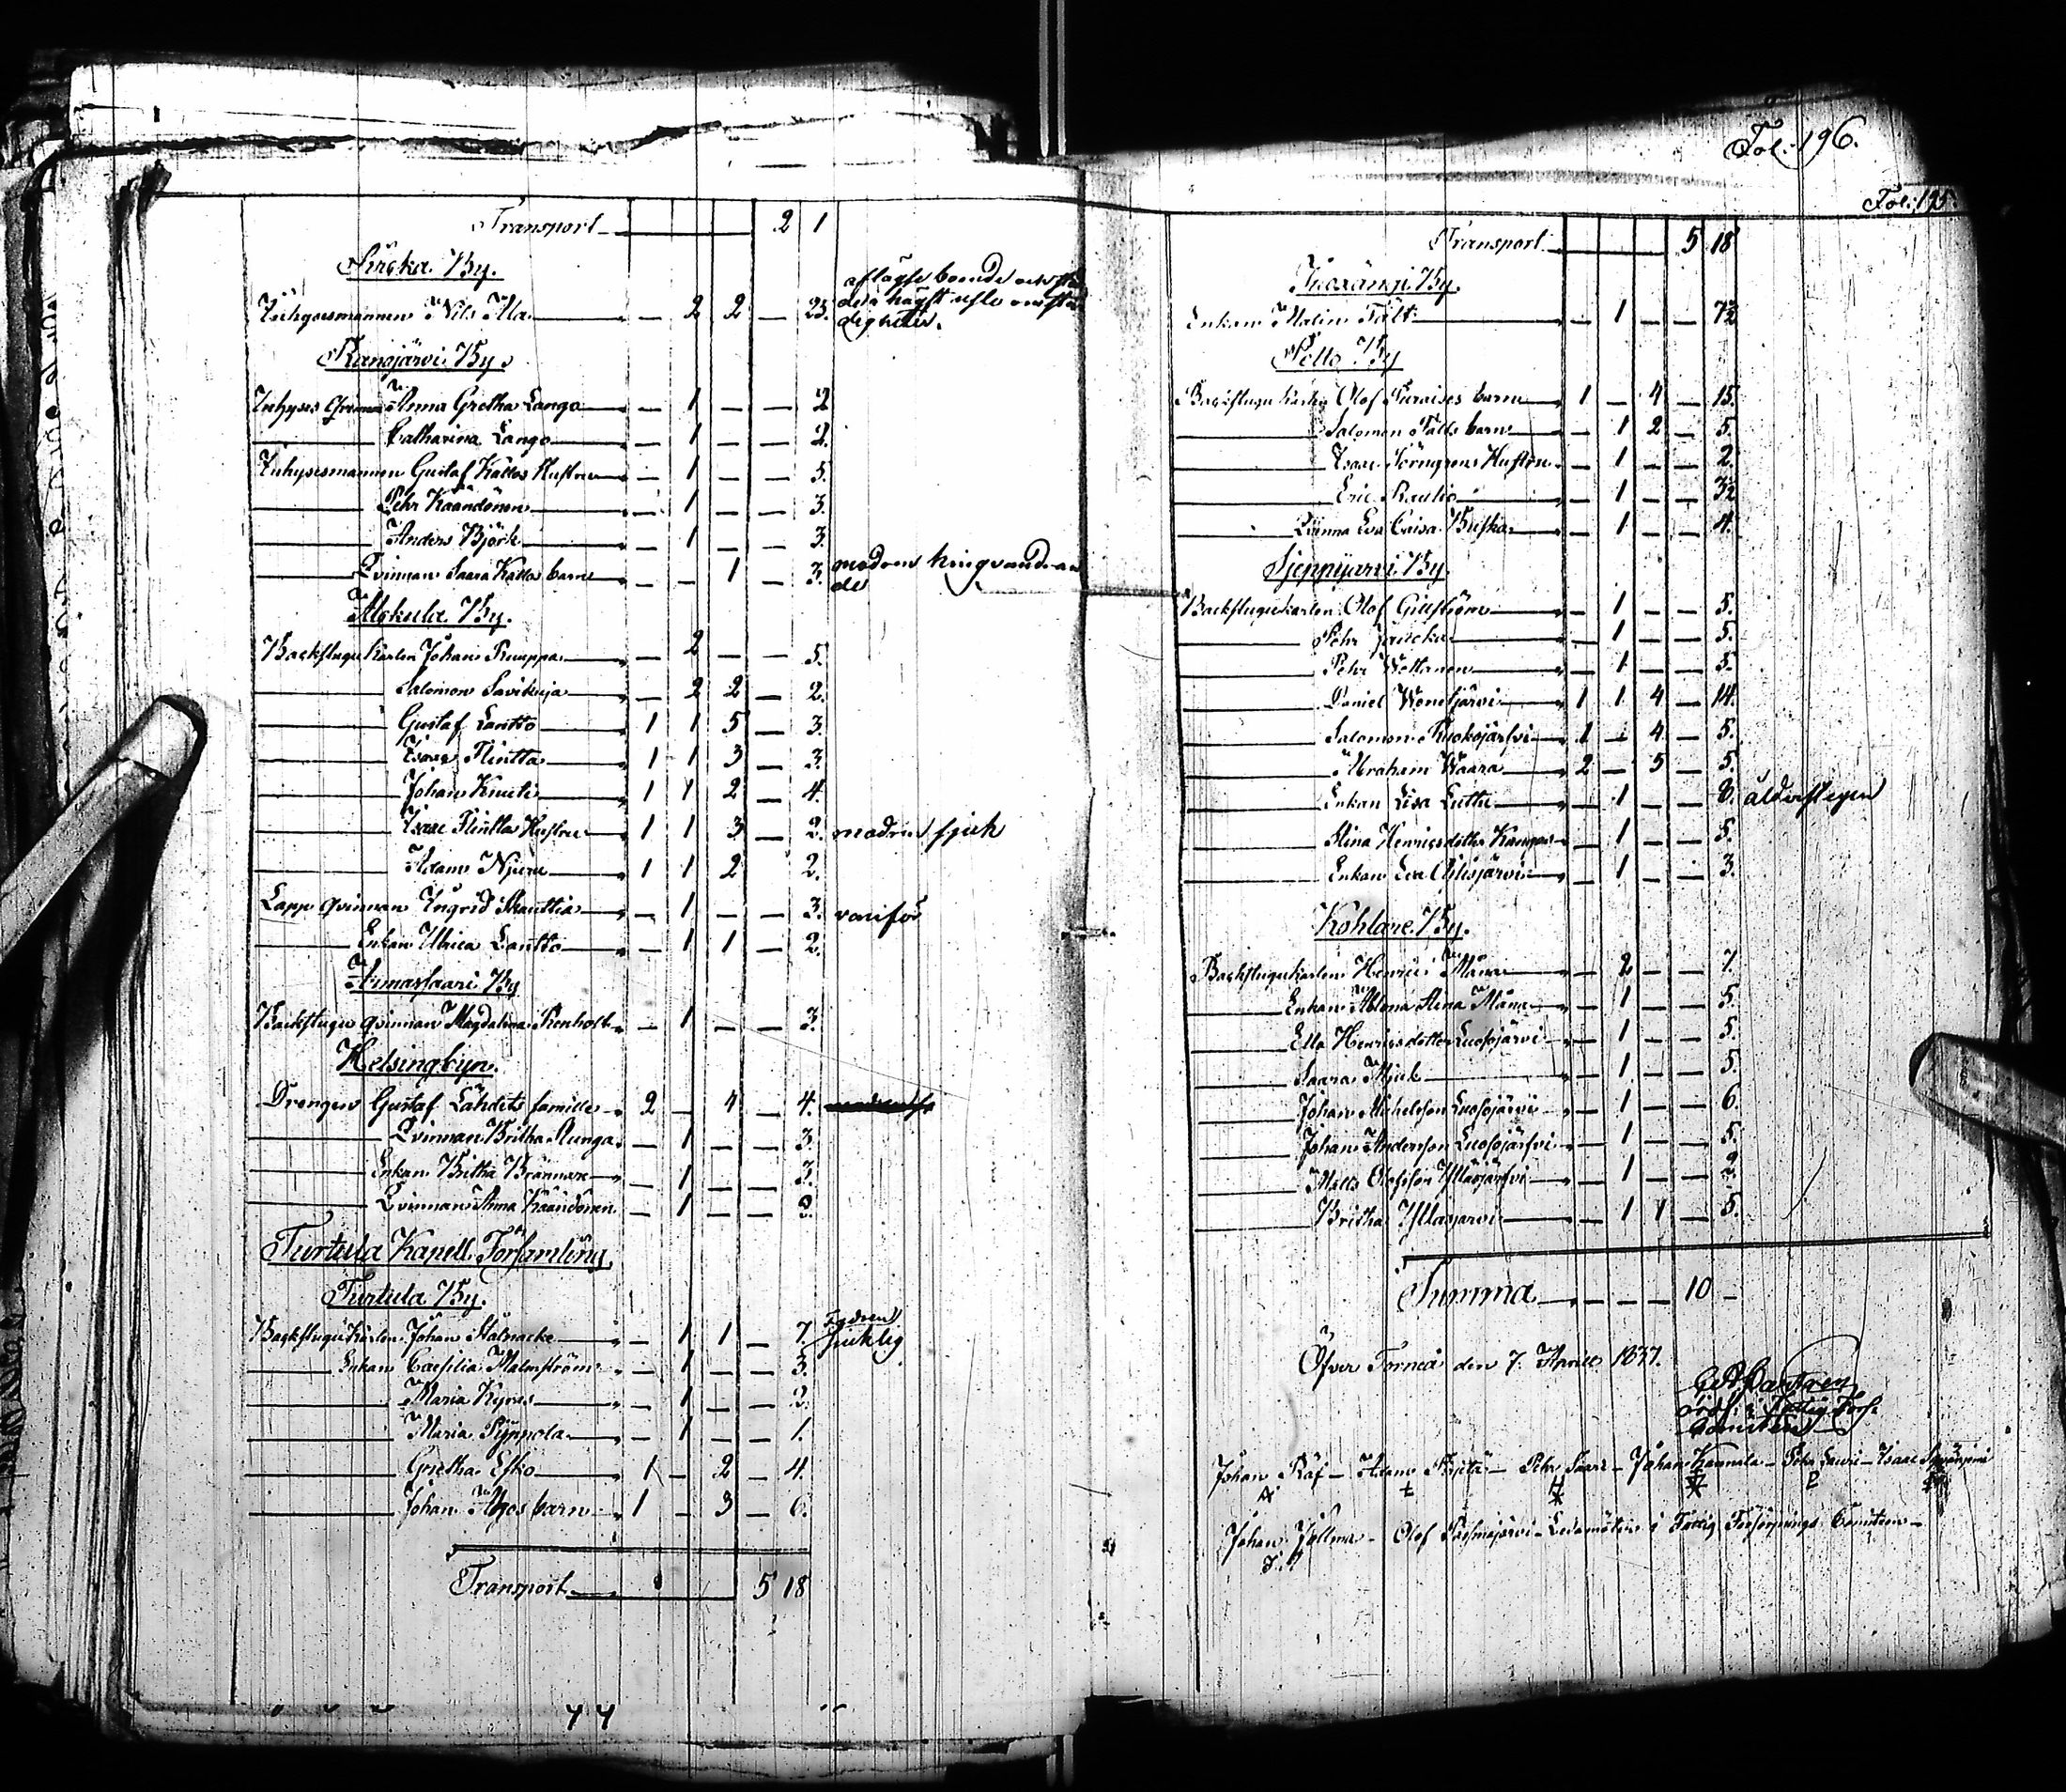 Transport 2 1
Sircka By.
Inhysesmannen Nils Alla — 2 2 — 23. aflägse boende och
des högst usle omstän
digheter.
Kangjärvi By.
Inhyses Qvinnan Anna Gretha Lango — 1 — — 2
Catharina Lango — 1 — — 2.
Inhysesmannen Gustaf Kallos Hustru — 1 — — 5.
Pehr Kaandonen — 1 — — 3.
Anders Björk — 1 — — 3.
Qvinnan Saara Kallos barn — — 1 — 3. modren kringvandran
de
Alckula By.
Backstugu Karlen Johan Ruuppa — 2 — — 5.
Salomon Savikuja — 2 2 — 2.
Gustaf Lantto 1 1 5 — 3.
Isaac Flintta 1 1 3 — 3.
Johan Knuti 1 1 2 — 4.
Isaac Flintta Hustru 1 1 3 — 2. modren sjuk
Adam Njura 1 1 2 2.
Lapp qvinnan Ingrid Skauttia — 1 — — 3. vanför
Enkan Ulrica Lantto — 1 1 — 2.
Armassaari By
Backstugu qvinnan Magdalena Renholt — 1 — — 3.
Helsingbyn.
Drengen Gustaf Lahdets famille 2 — 4 — 4.
Qvinnan Britha Runga — 1 — — 3.
Enkan Britha Brännare — 1 — — 3.
Qvinnan Anna Kaandonen — 1 — —
Turtula Kapell Församling
Turtula By.
Backstugu Karlen Johan Stålnacke — 1 1 — 7. Fadren
sjuklig
Enkan Caesilia Malmström — 1 — — 3.
Maria Kyrös — 1 — — 2.
Maria Pyppola — 1 — — 1.
Gretha Esko 1 — 2 — 4.
Johan Apos barn 1 — 3 — 6.
Transport 5 18
44
Fol: 196.
Fol: 195.
Transport 5 18
Juoxangi By.
Enkan Malin Fält — 1 — — 7½
Pello By
Backstugu Karlen Olof barn 1 — 4 — 15.
Salomon Fälts barn — 1 2 — 5.
Isaac Törngrens Hustru — 1 — — 2.
Eric Rautio — 1 — — 3½
Qvinna Eva Caisa Buska — 1 — — 4.
Sjeppijarvi By.
Backstugukarlen Olof Gillström — 1 — — 5.
Pehr Jaucka — 1 — — 5.
Pehr Wettanen — 1 — — 5.
Daniel 1 1 4 — 14.
Salomon Ruokojärfvi 1 — 4 — 5.
Abraham Waara 2 — 5 — 5.
Enkan Lisa Luttu — 1 — — 8. ålderstegen
Stina Henricsdotter Kangas — 1 — — 5.
Enkan Eva — 1 — — 3.
Kohlare By.
Backstugukarlen Henric Måna — 2 — — 7.
Enkan Stina Måna — 1 — — 5.
Ella Henricsdotter Luosojärvi — 1 — — 5.
Saara Mjuk — 1 — — 5.
Johan Michelsson Luosojärvi — 1 — — 6.
Johan Andersson Luosojärfvi — 1 — — 5.
Matts Olofsson Yllasjärfvi — 1 — —
Britha Yllasjarvi — 1 1 — 5.
Summa 10 —
Öfver Torneå den 7. April 1837.
Castren
ordf: i Fattig Förs:
Comiteen
Johan Räf — Adam — Pehr Saari — Johan Kannala — Pehr Lauri — Isaac
Johan — Olof — Ledamöter i Fattig Försörjnings Comiteen —